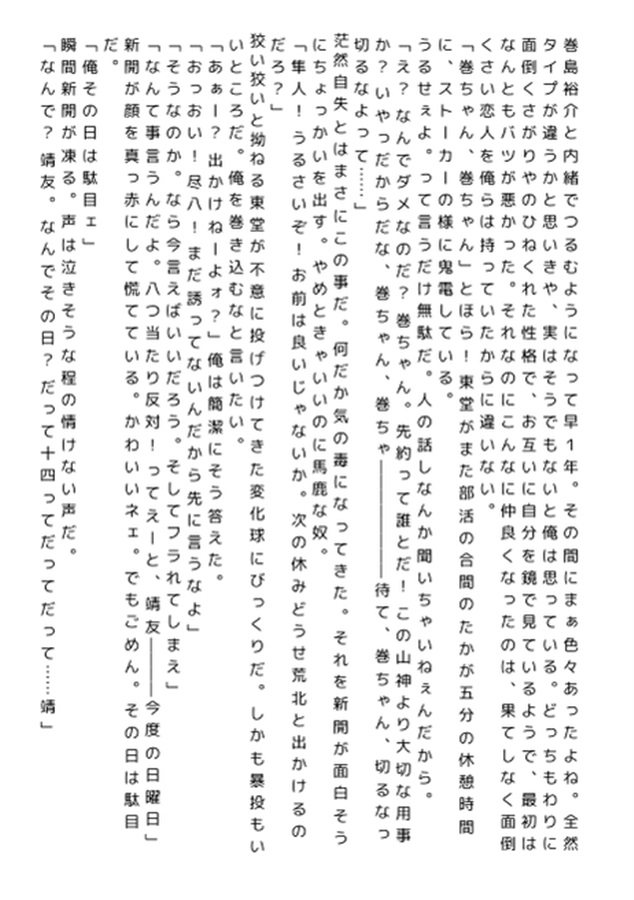 巻島裕介と内緒でつるむようになって早1年。その間にまぁ色々あったよね。全然
タイプが違うかと思いきや、実はそうでもないと俺は思っている。どっちもわりに
面倒くさがりやのひねくれた性格で、お互いに自分を鏡で見ているようで、最初は
なんともバツが悪かった。それなのにこんなに仲良くなったのは、果てしなく面倒
くさい恋人を俺らは持っていたからに違いない。
「巻ちゃん、巻ちゃん」とほら！東堂がまた部活の合間のたかが五分の休憩時間
に、ストーカーの様に鬼電している。
うるせぇよ。って言うだけ無駄だ。人の話しなんか聞いちゃいねぇんだから。
「え？なんでダメなのだ？巻ちゃん。先約って誰とだ！この山神より大切な用事
か？いやっだからだな、巻ちゃん、巻ちゃ―――――待て、巻ちゃん、切るなっ
切るなよって……」
茫然自失とはまさにこの事だ。何だか気の毒になってきた。それを新開が面白そう
にちょっかいを出す。やめときゃいいのに馬鹿な奴。
「隼人！うるさいぞ！お前は良いじゃないか。次の休みどうせ荒北と出かけるの
だろ？」
狡い狡いと拗ねる東堂が不意に投げつけてきた変化球にびっくりだ。しかも暴投もい
いところだ。俺を巻き込むなと言いたい。
「あぁー？出かけねーよォ？」俺は簡潔にそう答えた。
「おっおい！尽八！まだ誘ってないんだから先に言うなよ」
「そうなのか。なら今言えばいいだろう。そしてフラれてしまえ」
「なんて事言うんだよ。八つ当たり反対！ってえーと、靖友―――今度の日曜日」
新開が顔を真っ赤にして慌てている。かわいいネェ。でもごめん。その日は駄目
だ。
「俺その日は駄目ェ」
瞬間新開が凍る。声は泣きそうな程の情けない声だ。
「なんで？靖友。なんでその日？だって十四ってだってだって……靖」